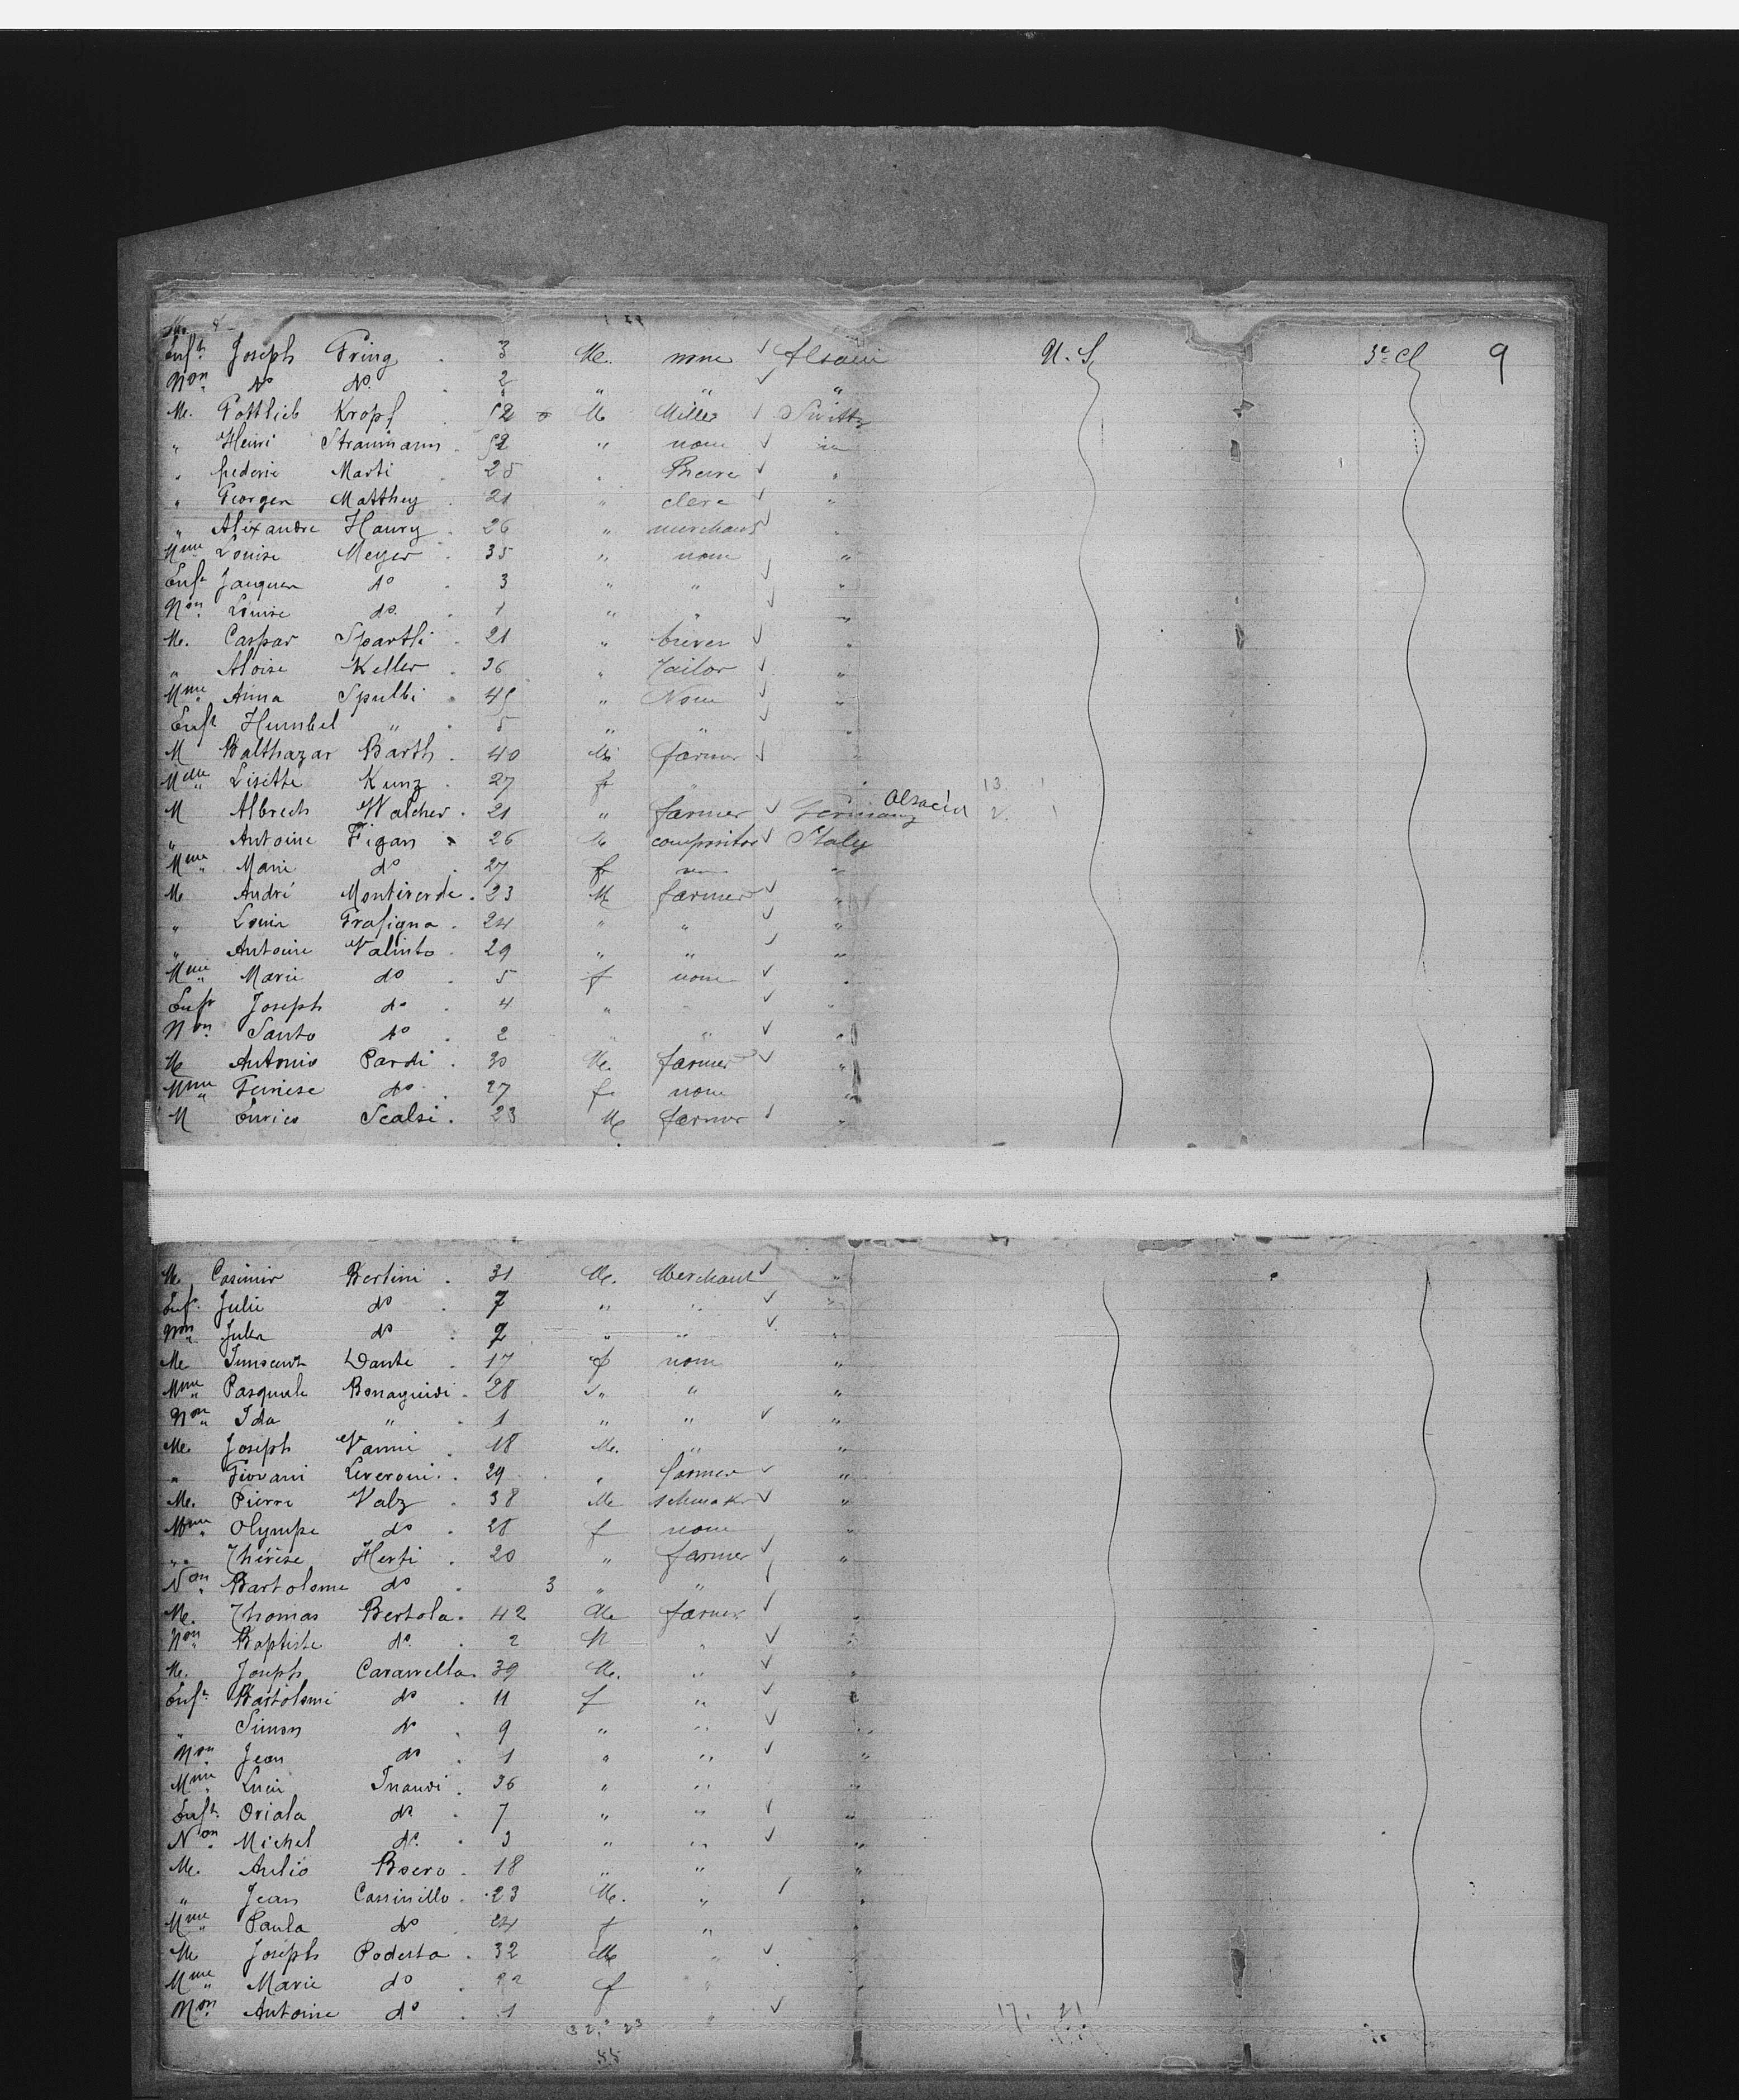 Enft. Joseph Fring . 3 M. none ✓ Alsacie U.S. 3e Cl 9
Non do do. 2 " " ✓ "
M. Gottlieb Kropf . 52 M Miller ✓ Swittz
" Heini Straumann . 52 " none ✓
" frederic Marti 25 " ✓ "
" Georgen Matthey . 21 " clerc ✓ "
" Alexandre Haury . 26 " merchant ✓ "
Mme " Louise Meyer . 35 " none "
Enft Jacques do . 3 " " ✓ "
Non Louise do. . 1 " " ✓ "
M. Caspar Spartli . 21 " brever ✓ "
" Aloise Keller . 36 " Tailor ✓ "
Mme " Anna Spulbi . 45 " None ✓ "
Enft Humbel " . 5 " " ✓ "
M Balthazar Barth . 40 M farmer ✓ "
Mdlle " Lisette Kunz . 27 f 13.
M Albrech Walcher . 21 " farmer ✓ Germany Alsacien 2.
" Antoine Figan . 26 M compositor ✓ Italy
Mme " Marie do . 27 f "
M André Montiverde . 23 M farmer ✓ "
" Louis Grafigna . 24 " " ✓ "
" Antoine Valinto . 29 " " ✓ "
Mme " Marie do . 5 f none ✓ "
Enft Joseph do . 4 " ✓ "
Non Santo do . 2 " ✓ "
M Antonio Pardi . 30 M. farmer ✓ "
Mme " do . 27 f none "
M Enrico Scalsi . 23 M farmer ✓ "
M. Casimir Bertini . 31 M. Merchant ✓ "
Enft. Julie do . 7 " " ✓ "
Non Jules do . 2 " " ✓ "
M Innocent Dante . 17 f none "
Mme " Pasquale Bonaguidi . 28 " " "
Non " Ida " . 1 " " ✓ "
M. Joseph Vanni . 18 M. " "
" Giovani Leveroni . 29 " farmer ✓ "
M. Pierre Valz . 38 M schmaker ✓ "
Mme " Olympe do . 28 f none "
" Thérèse Herti . 20 " farmer ✓ "
Non " Bartolome do . 3 " "
M. Thomas Bertola . 42 M farmer ✓ "
Non Baptiste do. . 2 M " ✓ "
M. Joseph Caravella . 39 M. " ✓ "
Enft. Bartolomé do . 11 f " ✓ "
" Simon do . 9 " " ✓ "
Non Jean do . 1 " " ✓ "
Mme Lucie Inaudi . 36 " " "
Enft. Oriala do . 7 " " ✓ "
Non Michel do. . 3 " " ✓ "
M. Aulio Boero . 18 " " "
" Jean Cassinillo . 23 M. " ✓ "
Mme " Paula do 24 f "
M Joseph Podesta . 32 M " ✓ "
Mme " Marie do . 22 f "
Non Antoine do . 1 " ✓ 17. 21
32. 23
55